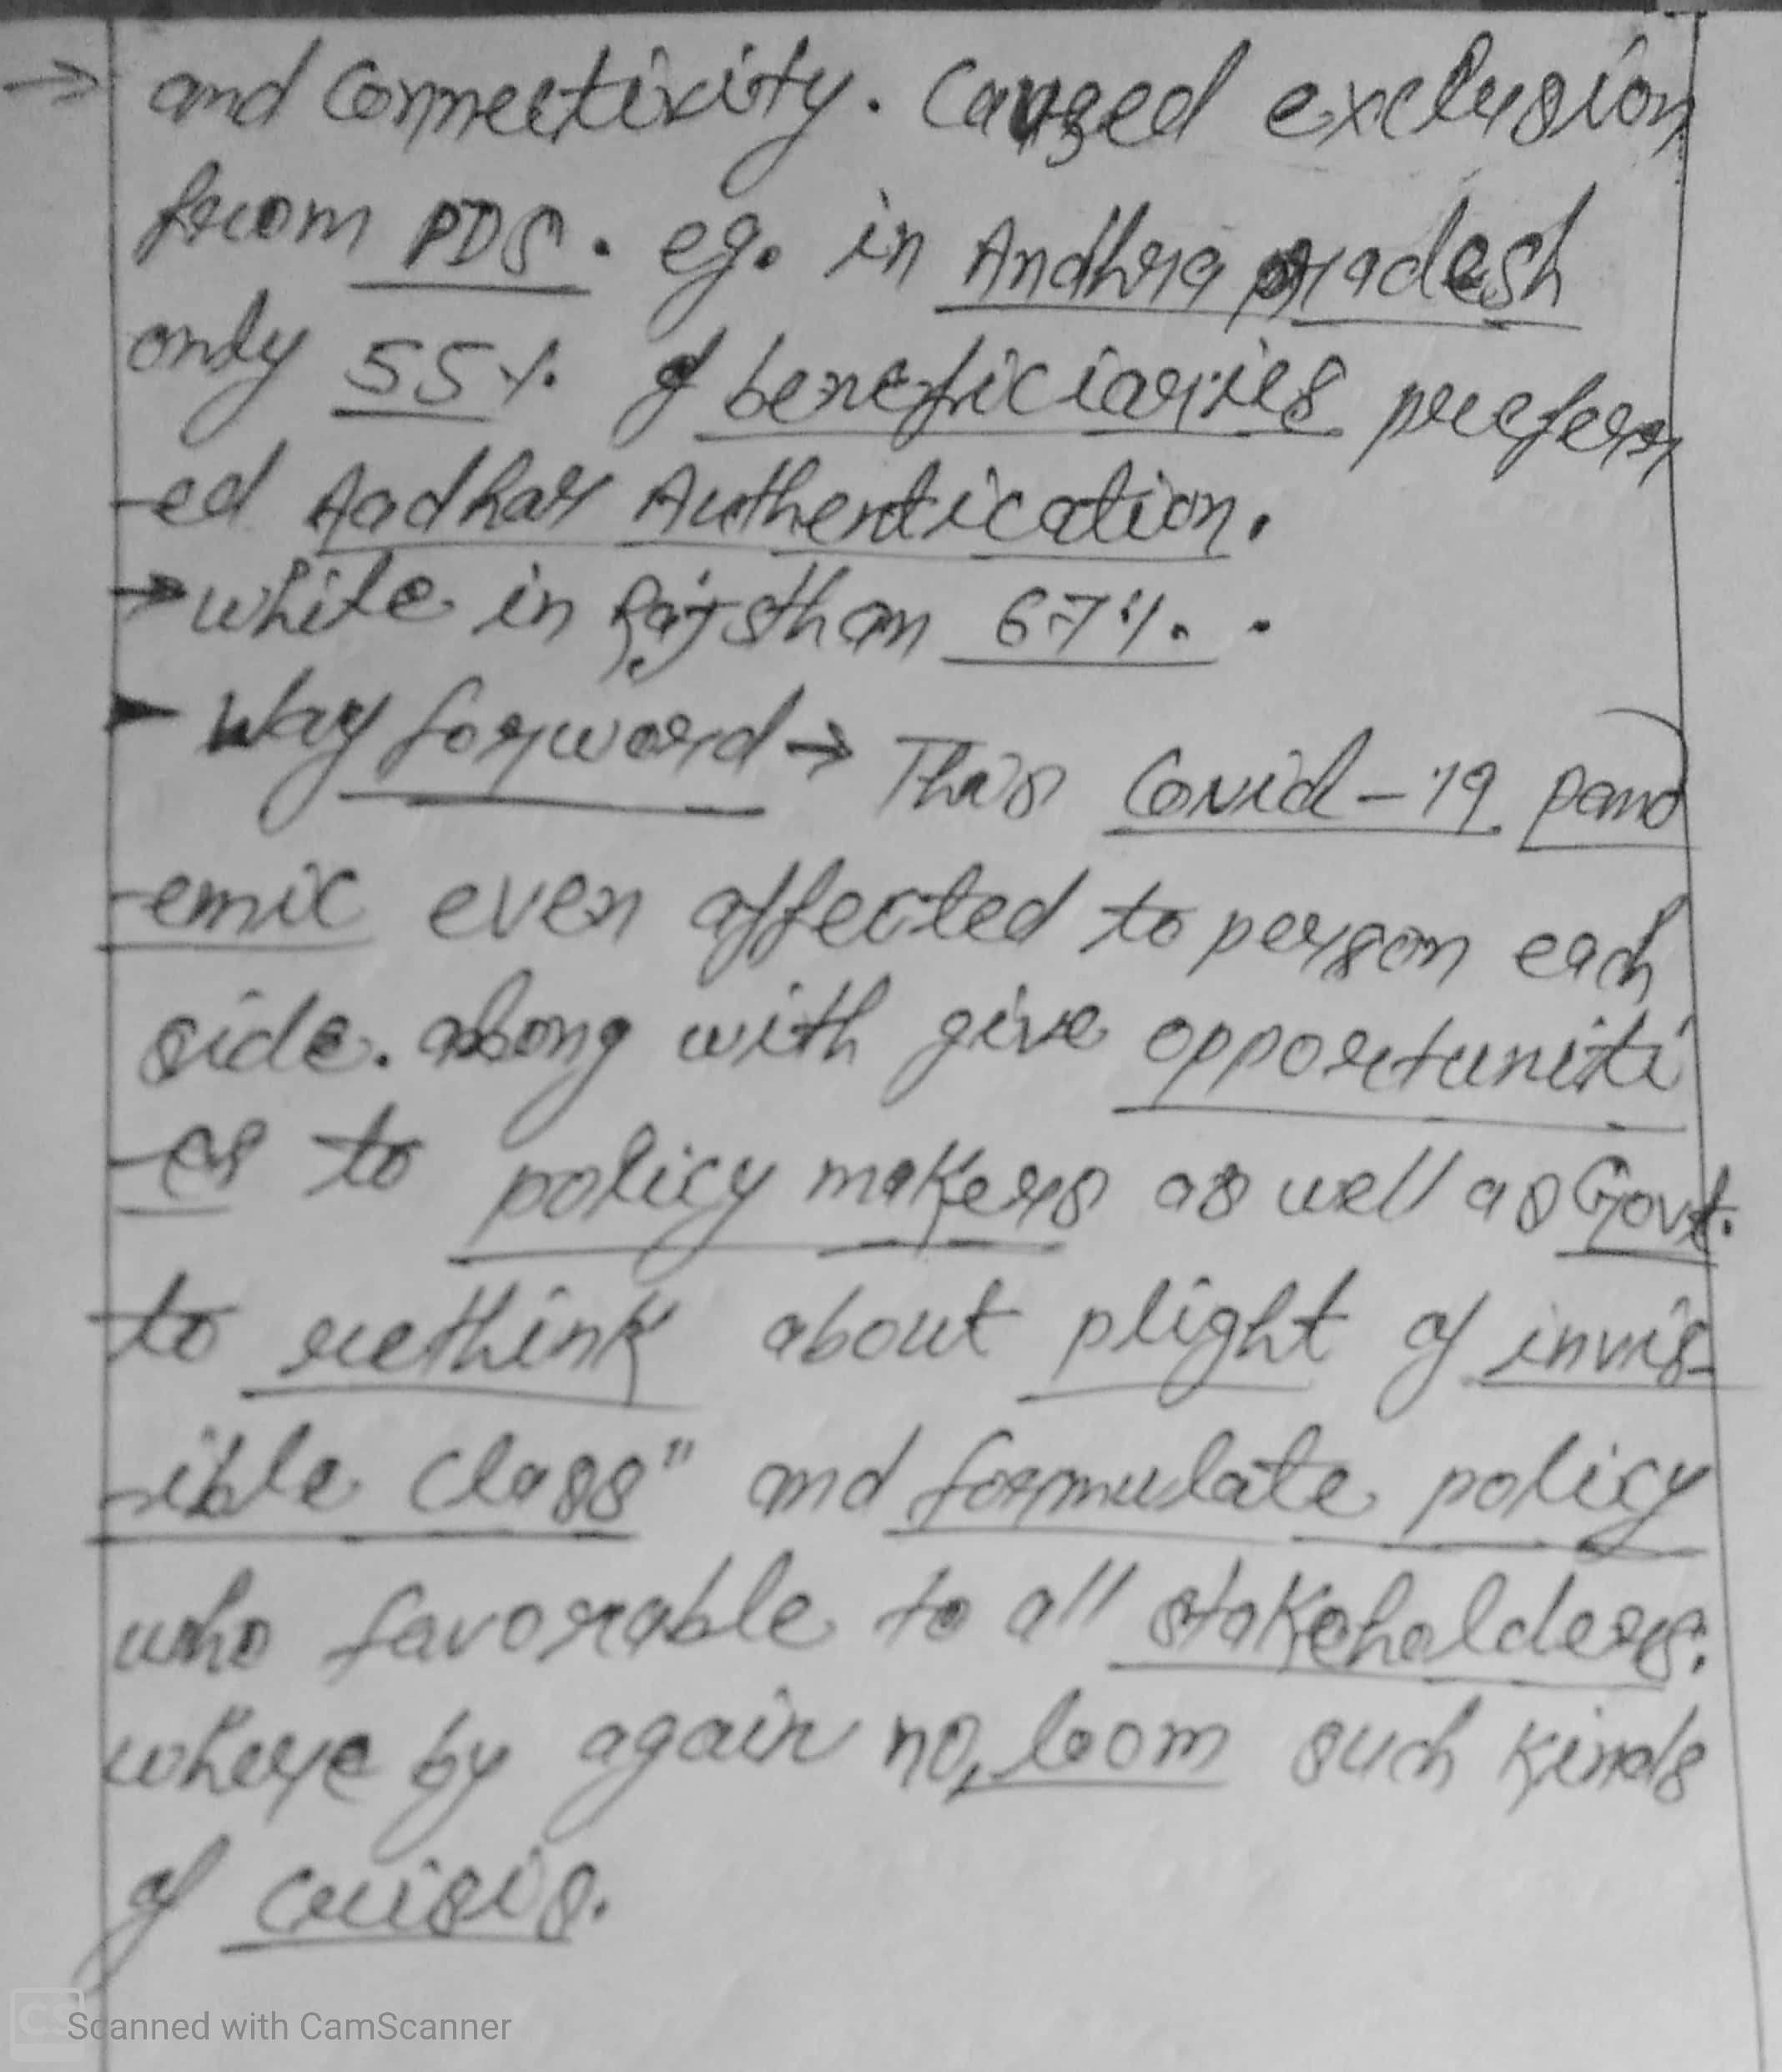 → and Connectivity. Caused exclusion
from PDS. eg. in Andhra pradesh
only 55% of beneficiaries preferr
-ed Aadhar Authentication.
→ while in Rajsthan 67%.
Way forword → This Covid-19 pand
-emic even affected to person each
side. along with give opportuniti
-es to policy makers as well as Govt.
to rethink about plight of invis-
-ible Class" and formulate policy
who favorable to all stakeholders.
where by again no, loom such kinds
of crisis.
Scanned with CamScanner